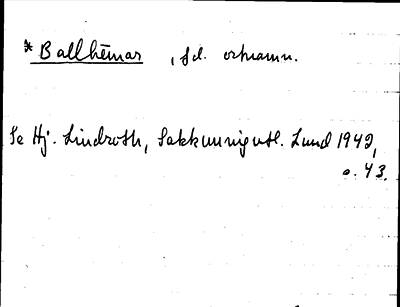 *Ballhēmar, sd. ortnamn.
Se Hj. Lindroth, Sakkunnigutl. Lund 1942,
s. 43.